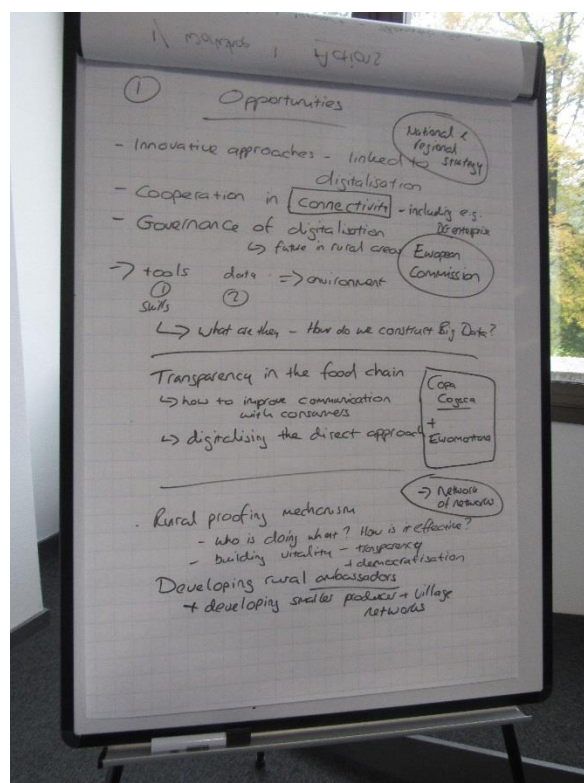 ①
Opportunities
National &
regional
strategy
- Innovative approaches - linked to
digitalisation
- Cooperation in connectivity - including e.g.
DG enterprise
- Governance of digitalisation
↳ future in rural areas
European
Commission
-> tools data => environment
① ②
skills
↳ what are they - How do we construct Big Data?
Transparency in the food chain
↳ how to improve communication
with consumers
↳ digitalising the direct approach
Copa
Cogeca
+
Euromontana
=> Network
of networks
. Rural proofing mechanism
- who is doing what? How is it effective?
- building vitality - transparency
+ democratisation
Developing rural ambassadors
+ developing smaller producer + village
networks